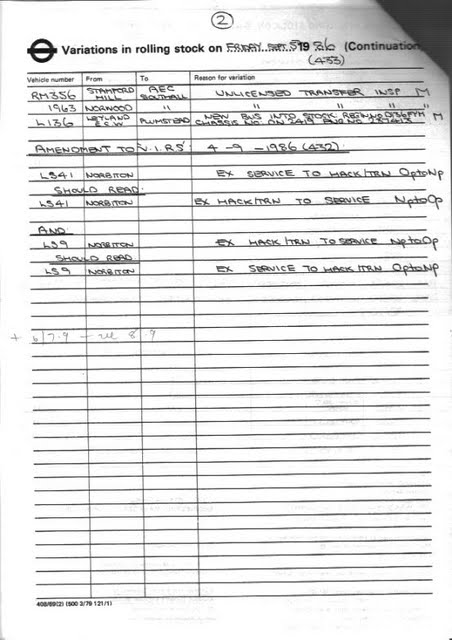 2
Variations in rolling stock on FRIDAY. SEPT. 5 1986 (Continuation)
(433)
Vehicle number From To Reason for variation
RM356 STAMFORD HILL AEC SOUTHALL UNLICENSED TRANSFER INSP M
1963 NORWOOD " " " " "
L136 LEYLAND E.C.W PLUMSTEAD NEW BUS INTO STOCK. REG. NO D136FYM M
CHASSIS NO. ON 2419 ENG NO
AMENDMENT TO V.I.R'S 4-9-1986 (432)
LS41 NORBITON EX SERVICE TO HACK/TRN Op to Np
SHOULD READ
LS41 NORBITON EX HACK/TRN TO SERVICE Np to Op
AND.
LS9 NORBITON EX HACK/TRN TO SERVICE Np to Op
SHOULD READ
LS9 NORBITON EX SERVICE TO HACK/TRN Op to Np
+ 6/7.9 8.9
408/69(2) (500 3/79 121/1)